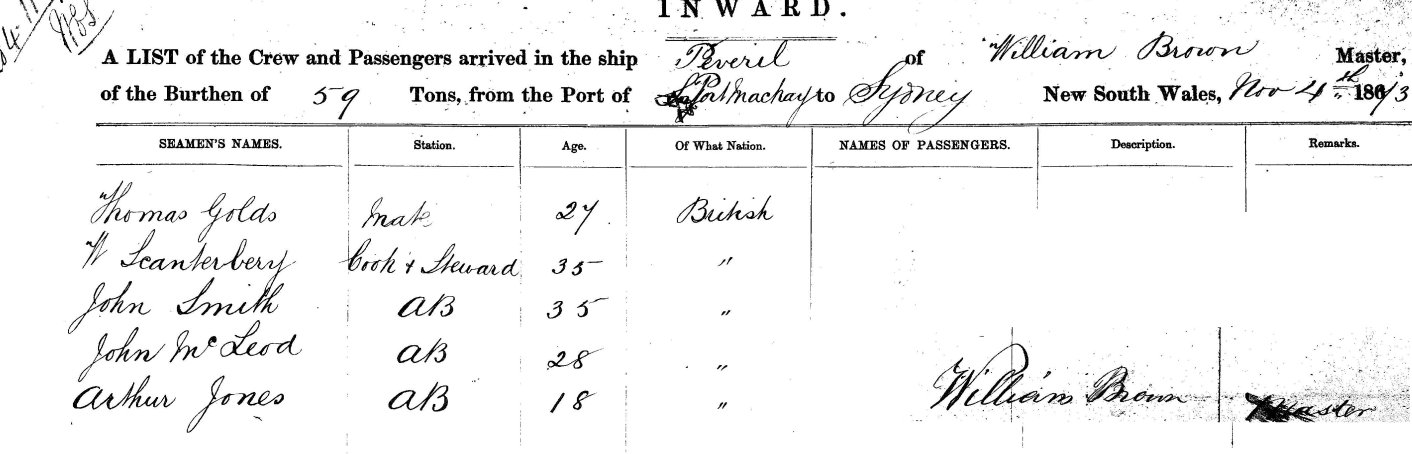 INWARD.
A LIST of the Crew and Passengers arrived in the ship Peveril of William Brown Master,
of the Burthen of 59 Tons, from the Port of Port Machay to Sydney New South Wales, Nov 4th 1873
SEAMEN'S NAMES. Station. Age. Of What Nation. NAMES OF PASSENGERS. Description. Remarks.
Thomas Golds Mate 27 British
W Scanterbery Cook & Steward 35 "
John Smith AB 35 "
John McLeod AB 28 "
Arthur Jones AB 18 " William Brown Master